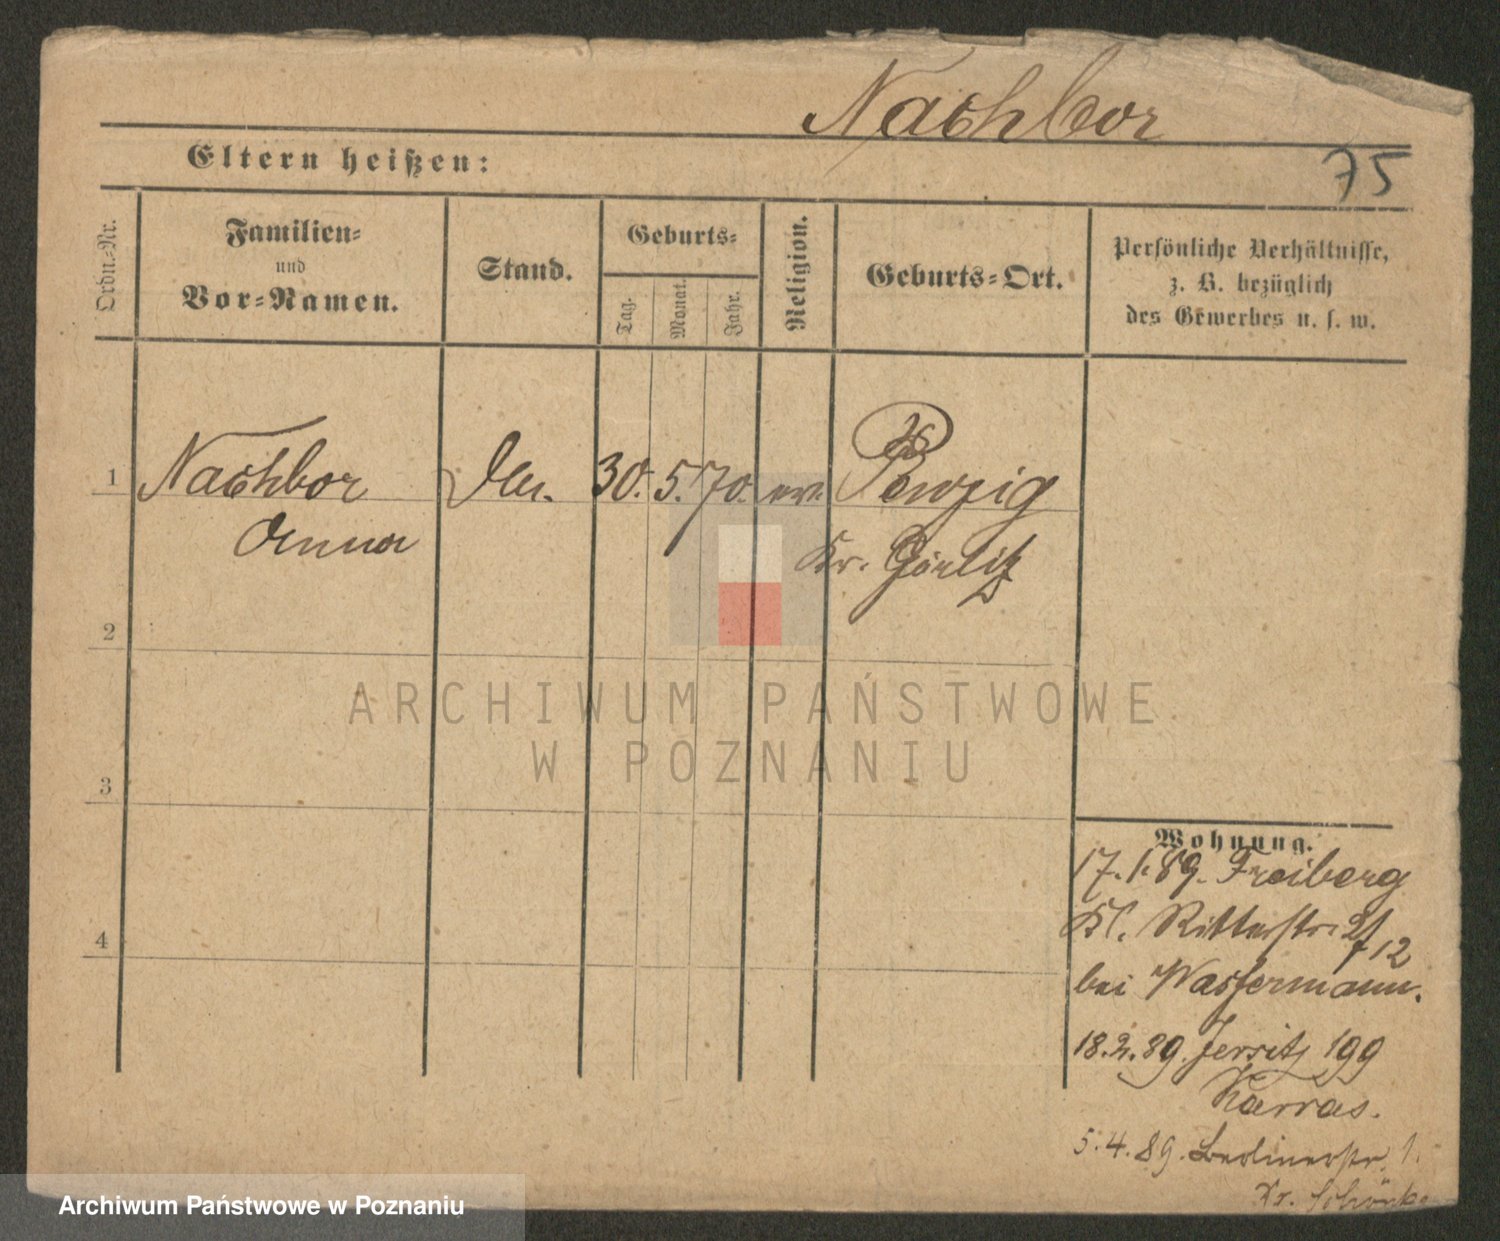 Nachbor
Eltern heißen:
75
Ordn.-Nr.
Familien-
und
Vor-Namen.
Stand.
Geburts-
Tag.
Monat.
Jahr.
Religion.
Geburts-Ort.
Persönliche Verhältnisse,
z. B. bezüglich
des Gewerbes u. s. w.
1 Nachbor 30. 5. 70. ev. Penzig
Anna Kr. Görlitz
2
3
4
Wohnung.
17. 1. 89. Freiberg
Kl. Ritterstr. 12
bei Wassermann.
18. 2. 89. Jersitz 199
Karras.
5. 4. 89. Berlinerstr. 1.
ARCHIWUM PAŃSTWOWE
W POZNANIU
Archiwum Państwowe w Poznaniu